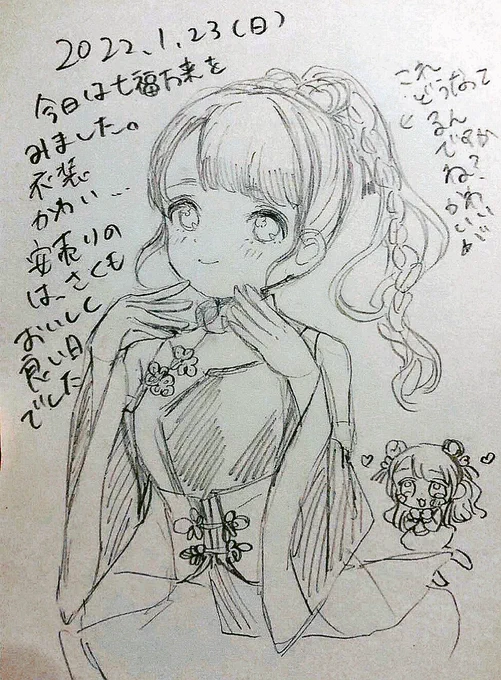 2022.1.23(日)
今日は七福万来を
みました。
衣装
かわい…
安売りの
は、さくも
おいしく
良い日
でした
これ
どうなって
るん
ですか
ね？
かわいいが